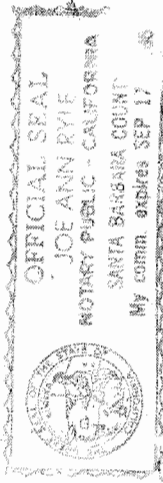 OFFICIAL SEAL
JOE ANN RYLE
NOTARY PUBLIC - CALIFORNIA
SANTA BARBARA COUNTY
My comm. expires SEP 17